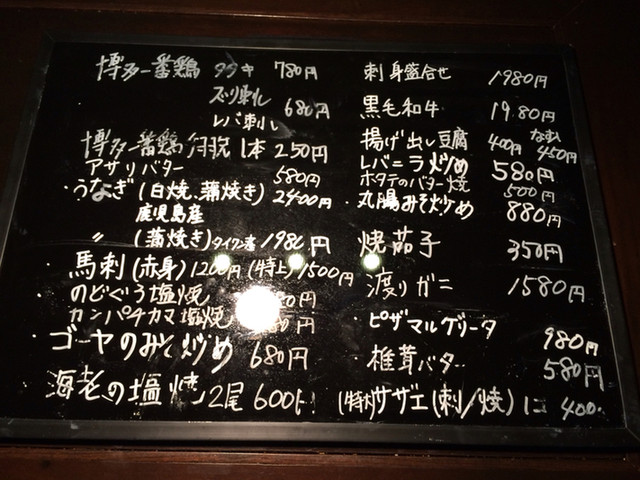 博多一番鶏 タタキ 780円
ズリ刺し 680円
レバ刺し
博多一番鶏 1本 250円
アサリバター 580円
・うなぎ(白焼、蒲焼き) 2400円
鹿児島産
〃 (蒲焼き) 1980円
・馬刺(赤身)1200円(特上)1500円
・のどぐろ塩焼 80円
カンパチカマ塩焼 80円
・ゴーヤのみそ炒め 680円
・海老の塩焼 2尾 600
刺身盛合せ 1980円
黒毛和牛 1980円
揚げ出し豆腐 400円 なす 450円
レバニラ炒め 580円
ホタテのバター焼 500円
丸腸みそ炒め 880円
焼茄子 350円
・渡りガニ 1580円
・ピザマルゲリータ 980円
・椎茸バター 580円
(特大)サザエ(刺/焼) 1コ 400